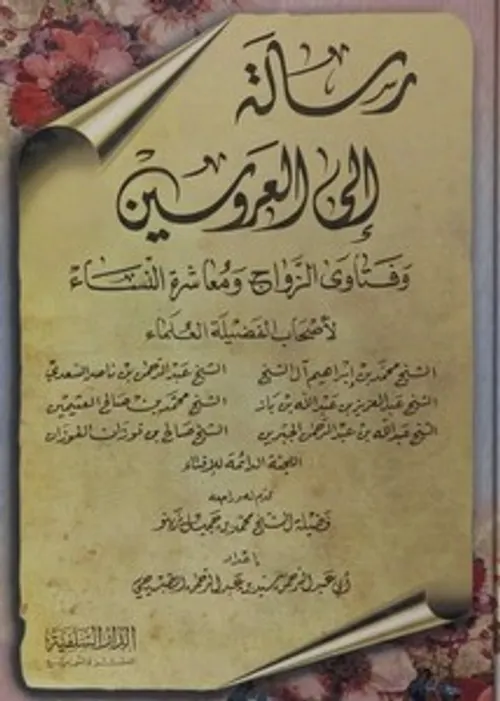 رسالة
إلى العروسين
وفتاوى الزواج ومعاشرة النساء
لأصحاب الفضيلة العلماء
الشيخ محمد بن إبراهيم آل الشيخ الشيخ عبد الرحمن بن ناصر السعدي
الشيخ عبد العزيز بن عبد الله بن باز الشيخ محمد بن صالح العثيمين
الشيخ عبد الله بن عبد الرحمن الجبرين الشيخ صالح بن فوزان الفوزان
اللجنة الدائمة للإفتاء
قدم له وراجعه
فضيلة الشيخ محمد بن جميل زينو
إعداد
أبي عبد الرحمن سيد بن عبد الرحمن الصبيحي
الدار السلفية
للنشر والتوزيع